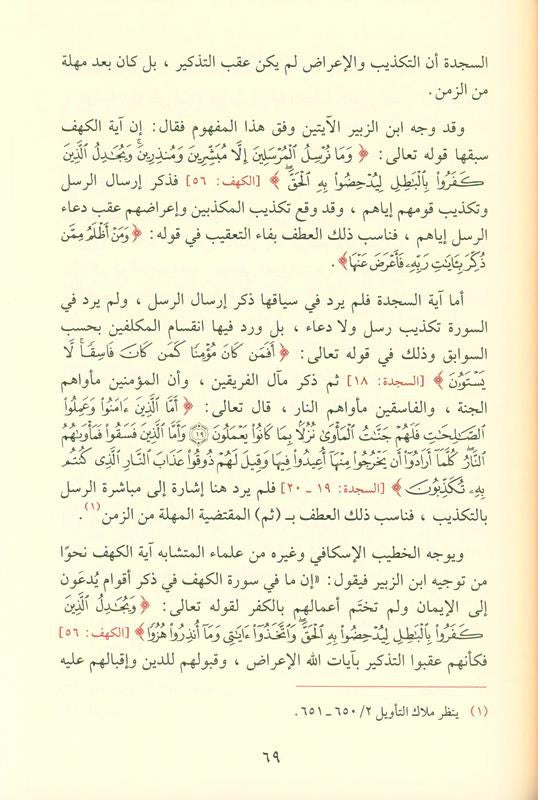 السجدة أن التكذيب والإعراض لم يكن عقب التذكير ، بل كان بعد مهلة
من الزمن.
وقد وجه ابن الزبير الآيتين وفق هذا المفهوم فقال: إن آية الكهف
سبقها قوله تعالى: ﴿ وَمَا نُرْسِلُ ٱلْمُرْسَلِينَ إِلَّا مُبَشِّرِينَ وَمُنذِرِينَۚ وَيُجَٰدِلُ ٱلَّذِينَ
كَفَرُوا۟ بِٱلْبَٰطِلِ لِيُدْحِضُوا۟ بِهِ ٱلْحَقَّۖ ﴾ [الكهف: ٥٦] فذكر إرسال الرسل
وتكذيب قومهم إياهم ، وقد وقع تكذيب المكذبين وإعراضهم عقب دعاء
الرسل إياهم ، فناسب ذلك العطف بفاء التعقيب في قوله: ﴿وَمَنْ أَظْلَمُ مِمَّن
ذُكِّرَ بِـَٔايَٰتِ رَبِّهِۦ فَأَعْرَضَ عَنْهَا﴾ .
أما آية السجدة فلم يرد في سياقها ذكر إرسال الرسل ، ولم يرد في
السورة تكذيب رسل ولا دعاء ، بل ورد فيها انقسام المكلفين بحسب
السوابق وذلك في قوله تعالى: ﴿ أَفَمَن كَانَ مُؤْمِنًا كَمَن كَانَ فَاسِقًاۚ لَّا
يَسْتَوُۥنَ ﴾ [السجدة: ١٨] ثم ذكر مآل الفريقين ، وأن المؤمنين مأواهم
الجنة ، والفاسقين مأواهم النار ، قال تعالى: ﴿ أَمَّا ٱلَّذِينَ ءَامَنُوا۟ وَعَمِلُوا۟
ٱلصَّٰلِحَٰتِ فَلَهُمْ جَنَّٰتُ ٱلْمَأْوَىٰ نُزُلًۢا بِمَا كَانُوا۟ يَعْمَلُونَ ۝١٩ وَأَمَّا ٱلَّذِينَ فَسَقُوا۟ فَمَأْوَىٰهُمُ
ٱلنَّارُۖ كُلَّمَآ أَرَادُوٓا۟ أَن يَخْرُجُوا۟ مِنْهَآ أُعِيدُوا۟ فِيهَا وَقِيلَ لَهُمْ ذُوقُوا۟ عَذَابَ ٱلنَّارِ ٱلَّذِى كُنتُم
بِهِۦ تُكَذِّبُونَ ﴾ [السجدة: ١٩ - ٢٠] فلم يرد هنا إشارة إلى مباشرة الرسل
بالتكذيب ، فناسب ذلك العطف بـ (ثم) المقتضية المهلة من الزمن(١).
ويوجه الخطيب الإسكافي وغيره من علماء المتشابه آية الكهف نحوًا
من توجيه ابن الزبير فيقول: «إن ما في سورة الكهف في ذكر أقوام يُدعَون
إلى الإيمان ولم تختَم أعمالهم بالكفر لقوله تعالى: ﴿ وَيُجَٰدِلُ ٱلَّذِينَ
كَفَرُوا۟ بِٱلْبَٰطِلِ لِيُدْحِضُوا۟ بِهِ ٱلْحَقَّۖ وَٱتَّخَذُوٓا۟ ءَايَٰتِى وَمَآ أُنذِرُوا۟ هُزُوًا﴾ [الكهف: ٥٦]
فكأنهم عقبوا التذكير بآيات الله الإعراض ، وقبولهم للدين وإقبالهم عليه
(١) ينظر ملاك التأويل ٢/ ٦٥٠ - ٦٥١ .
٦٩